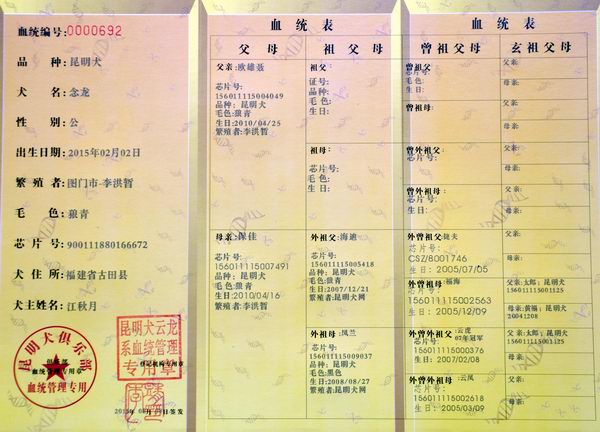 血统编号:0000692
品 种:昆明犬
犬 名:念龙
性 别:公
出生日期:2015年02月02日
繁殖者:图门市-李洪哲
毛 色:狼青
芯 片 号:900111880166672
犬 住 所:福建省古田县
犬主姓名:江秋月
昆明犬俱乐部
血统管理专用章
血统管理专用
昆明犬云龙
系血统管理
专用章
登记机构专用章
签发
血统表
父 母
祖父母
父亲:欧雄磊
芯片号:
156011115004049
品种: 昆明犬
毛色:狼青
生日:2010/04/25
繁殖者:李洪哲
祖父:
证号:
品种:
毛 色:
生 日:
祖母:
芯片号:
毛 色:
生 日:
母亲:保佳
芯片号:
156011115007491
品种: 昆明犬
毛色:狼青
生日:2010/04/16
繁殖者:李洪哲
外祖父:海迪
芯片号:
156011115005418
品种: 昆明犬
毛色:狼青
生日:2007/12/21
繁殖者:昆明犬网
外祖母:凤兰
芯片号:
156011115009037
品种: 昆明犬
毛色:黑色
生日:2008/08/27
繁殖者:昆明犬网
血统表
曾祖父母
玄祖父母
曾祖父:
芯片号:
毛色:
生日:
父亲:
母亲:
曾祖母:
父亲:
母亲:
曾外祖父:
芯片号:
父亲:
母亲:
曾外祖母:
毛 色:
生 日:
父亲:
母亲:
外曾祖父:捷夫
芯片号:
CSZ/8001746
生日: 2005/07/05
父亲:
母亲:
外曾祖母:福海
156011115002563
生日: 2005/12/09
父亲:太郎: 昆明犬
156011115001125
母亲:黄福: 昆明犬
20041208
外曾外祖父:云虎
芯片号: 07年冠军
156011115000376
生日: 2007/02/08
父亲:太郎: 昆明犬
156011115001125
母亲:
外曾外祖母:云凤
芯片号:
156011115002618
生日: 2005/03/09
父亲:
母亲: